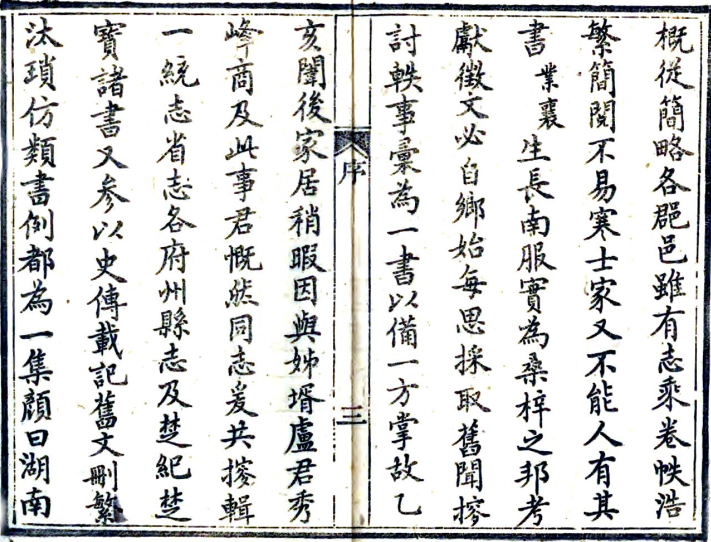 概從簡略各郡邑雖有志乘卷帙浩
繁簡閱不易寒士家又不能人有其
書業襄生長南服實為桑梓之邦考
獻徵文必自鄉始每思採取舊聞搜
討軼事彙為一書以備一方掌故乙
序
三
亥闈後家居稍暇因與姊壻盧君秀
峰商及此事君慨然同志爰共搜輯
一統志省志各府州縣志及楚紀楚
寶諸書又參以史傳載記舊文刪繁
汰瑣仿類書例都為一集顏曰湖南